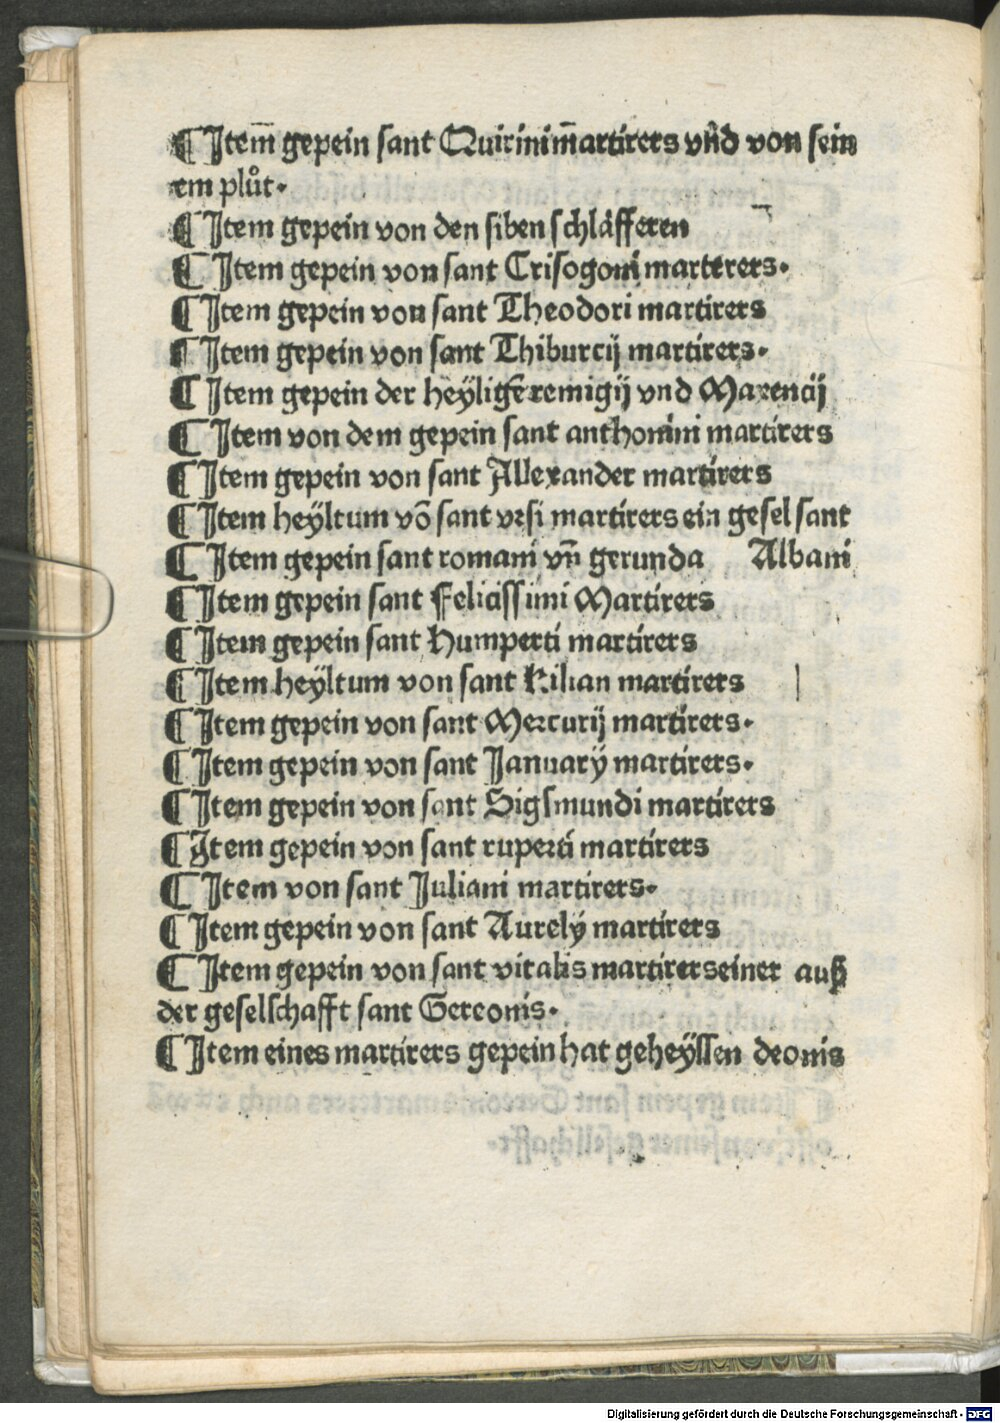 ¶ Jtem̅ gepein sant Quirini m̅artirers vn̅d von sein
em plůt.
¶ Jtem gepein von den siben schläfferen
¶ Jtem gepein von sant Crisogoni marterers.
¶ Jtem gepein von sant Theodori martirers
¶ Jtem gepein von sant Thiburcij martirers.
¶ Jtem gepein der heÿligē remigij vnd Maxencij
¶ Jtem von dem gepein sant anthonini martirers
¶ Jtem gepein von sant Allexander martirers
¶ Jtem heÿltum vō sant vrsi martirers ein gesel sant
¶ Jtem gepein sant romani vn̅ gerunda Albani
¶ Jtem gepein sant Felicissimi Martirers
¶ Jtem gepein sant Humperti martirers
¶ Jtem heÿltum von sant Kilian martirers
¶ Jtem gepein von sant Mercurij martirers.
¶ Jtem gepein von sant Januarÿ martirers.
¶ Jtem gepein von sant Sigsmundi martirers
¶ Jtem gepein von sant ruperti martirers
¶ Jtem von sant Juliani martirers.
¶ Jtem gepein von sant Aurelÿ martirers
¶ Jtem gepein von sant vitalis martirers einer auß
der gesellschafft sant Gereonis.
¶ Jtem eines martirers gepein hat geheÿssen deonis
Digitalisierung gefördert durch die Deutsche Forschungsgemeinschaft - DFG